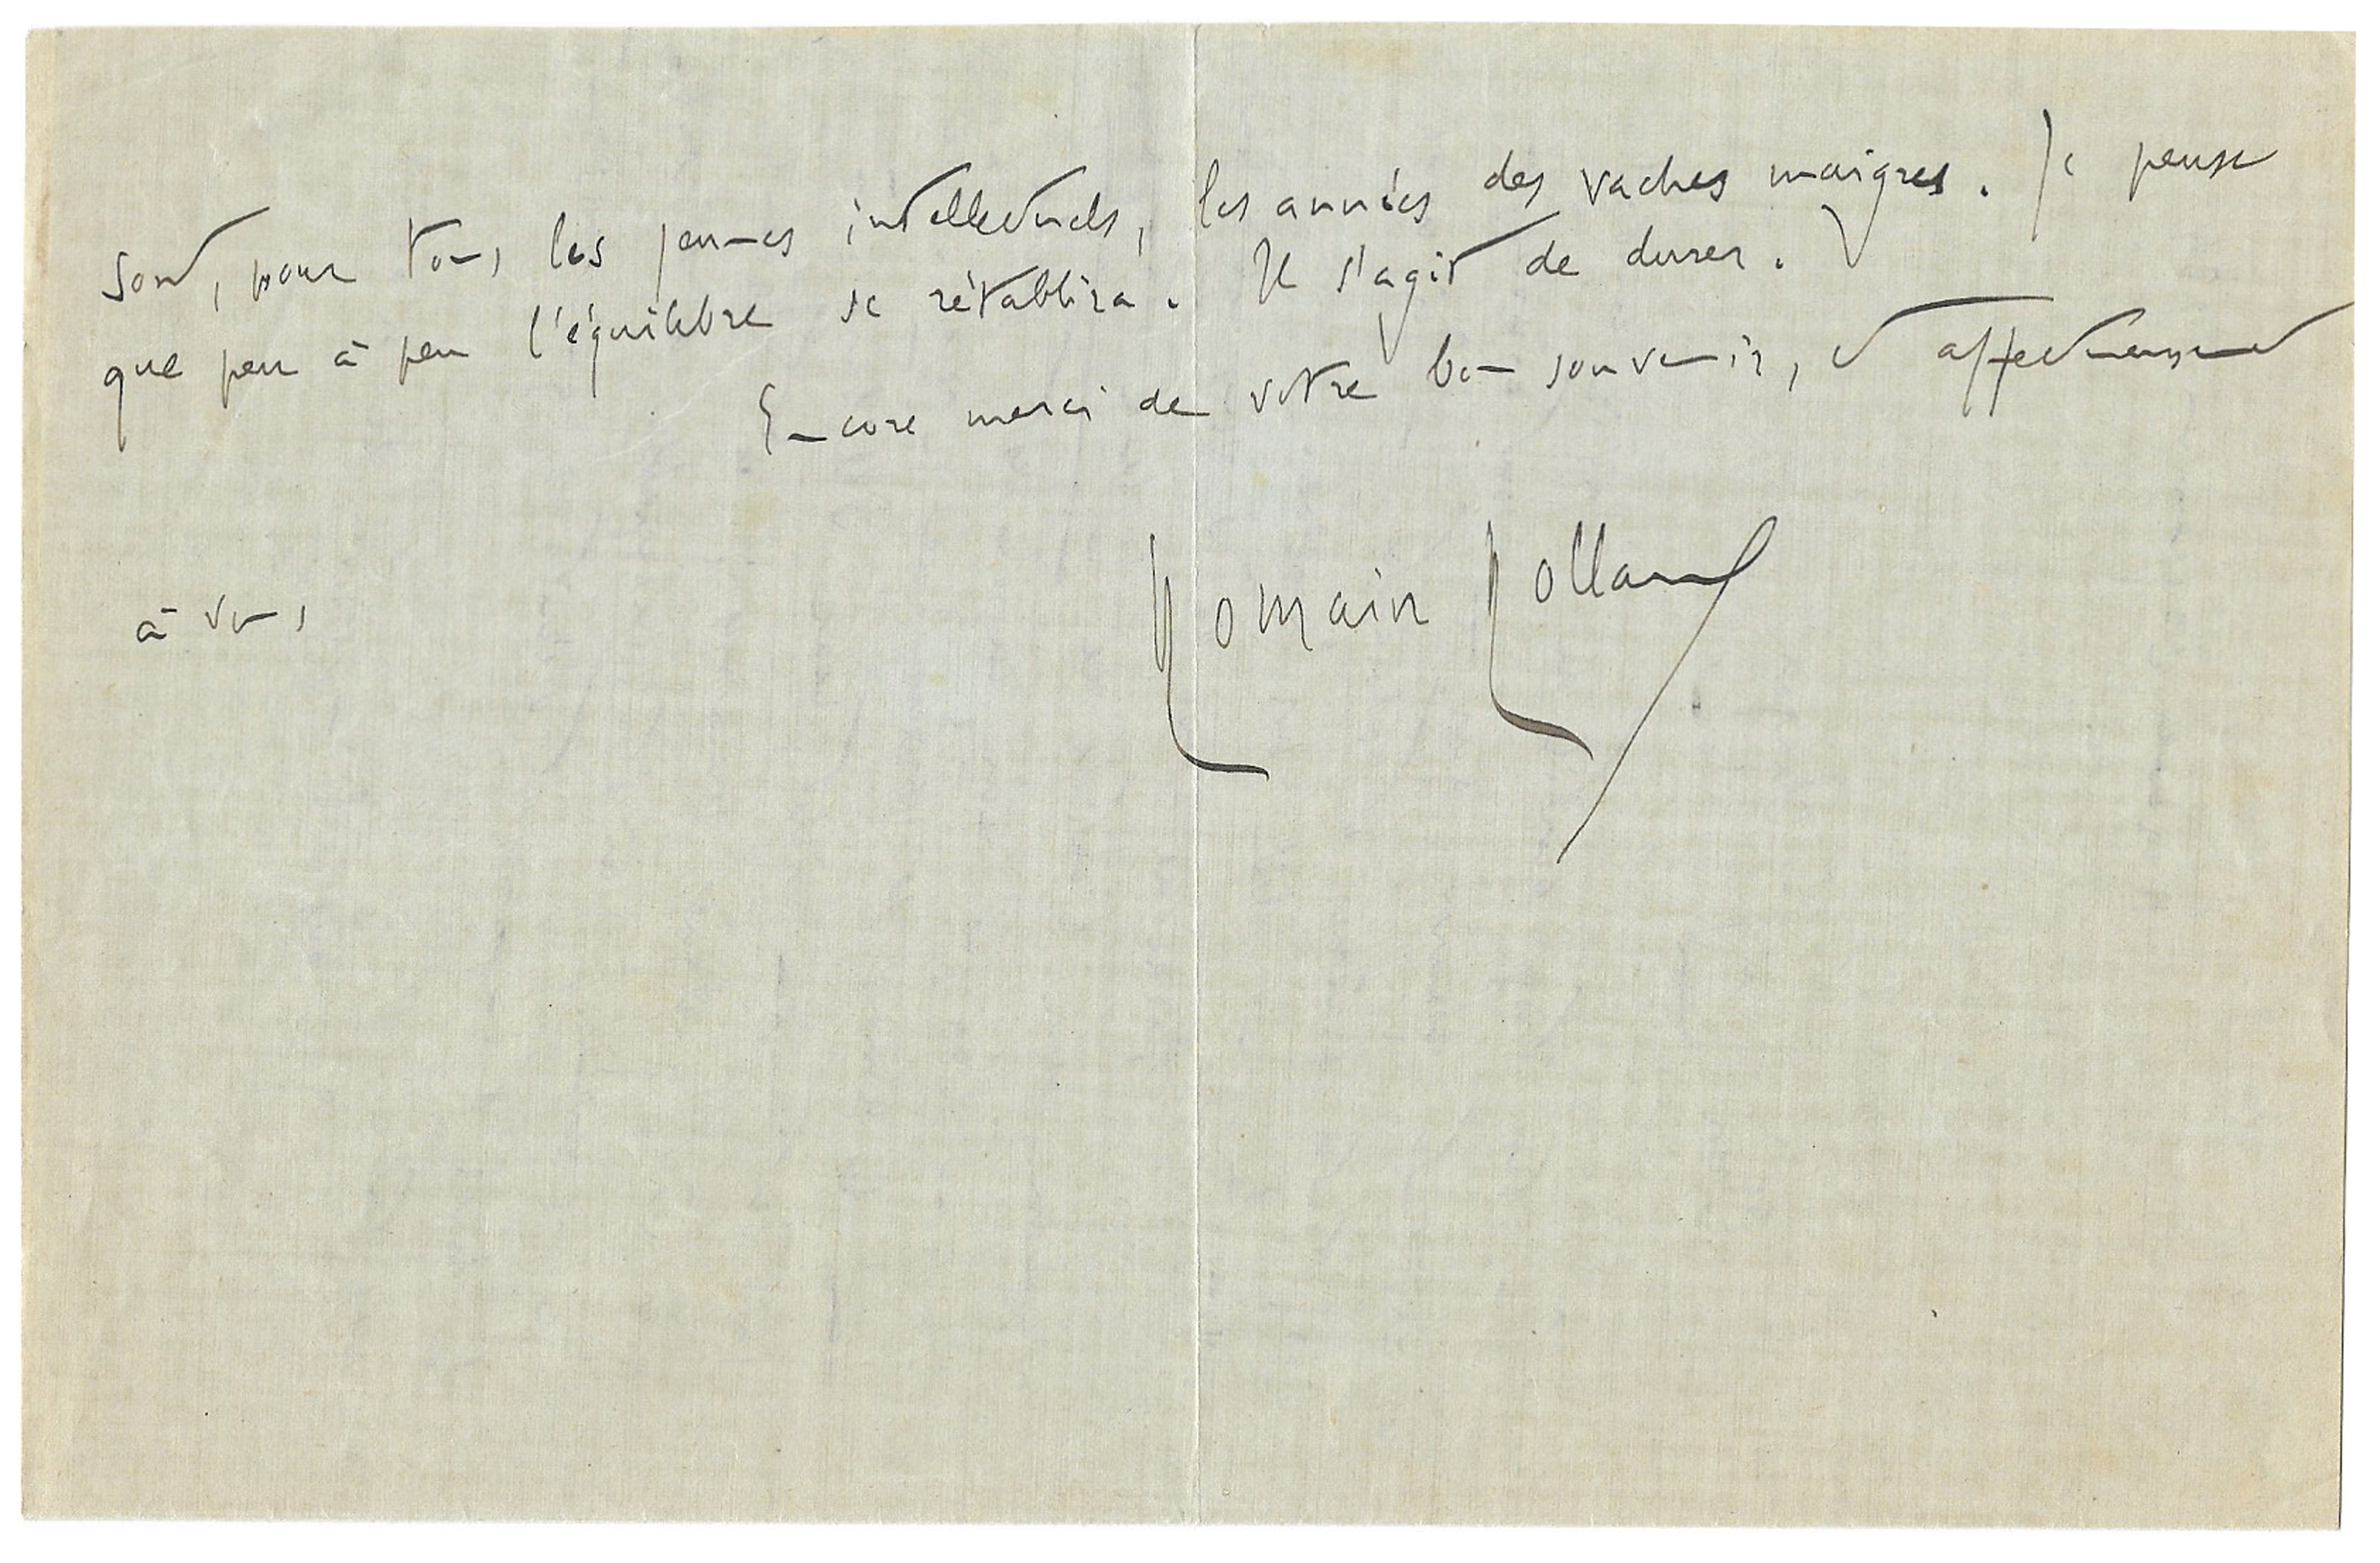 sont, pour tous les jeunes intellectuels, les années des vaches maigres. Je pense
que peu à peu l'équilibre se rétablira. Il s'agit de durer.
Encore merci de votre bon souvenir, et affectueusement
à vous,
Romain Rolland